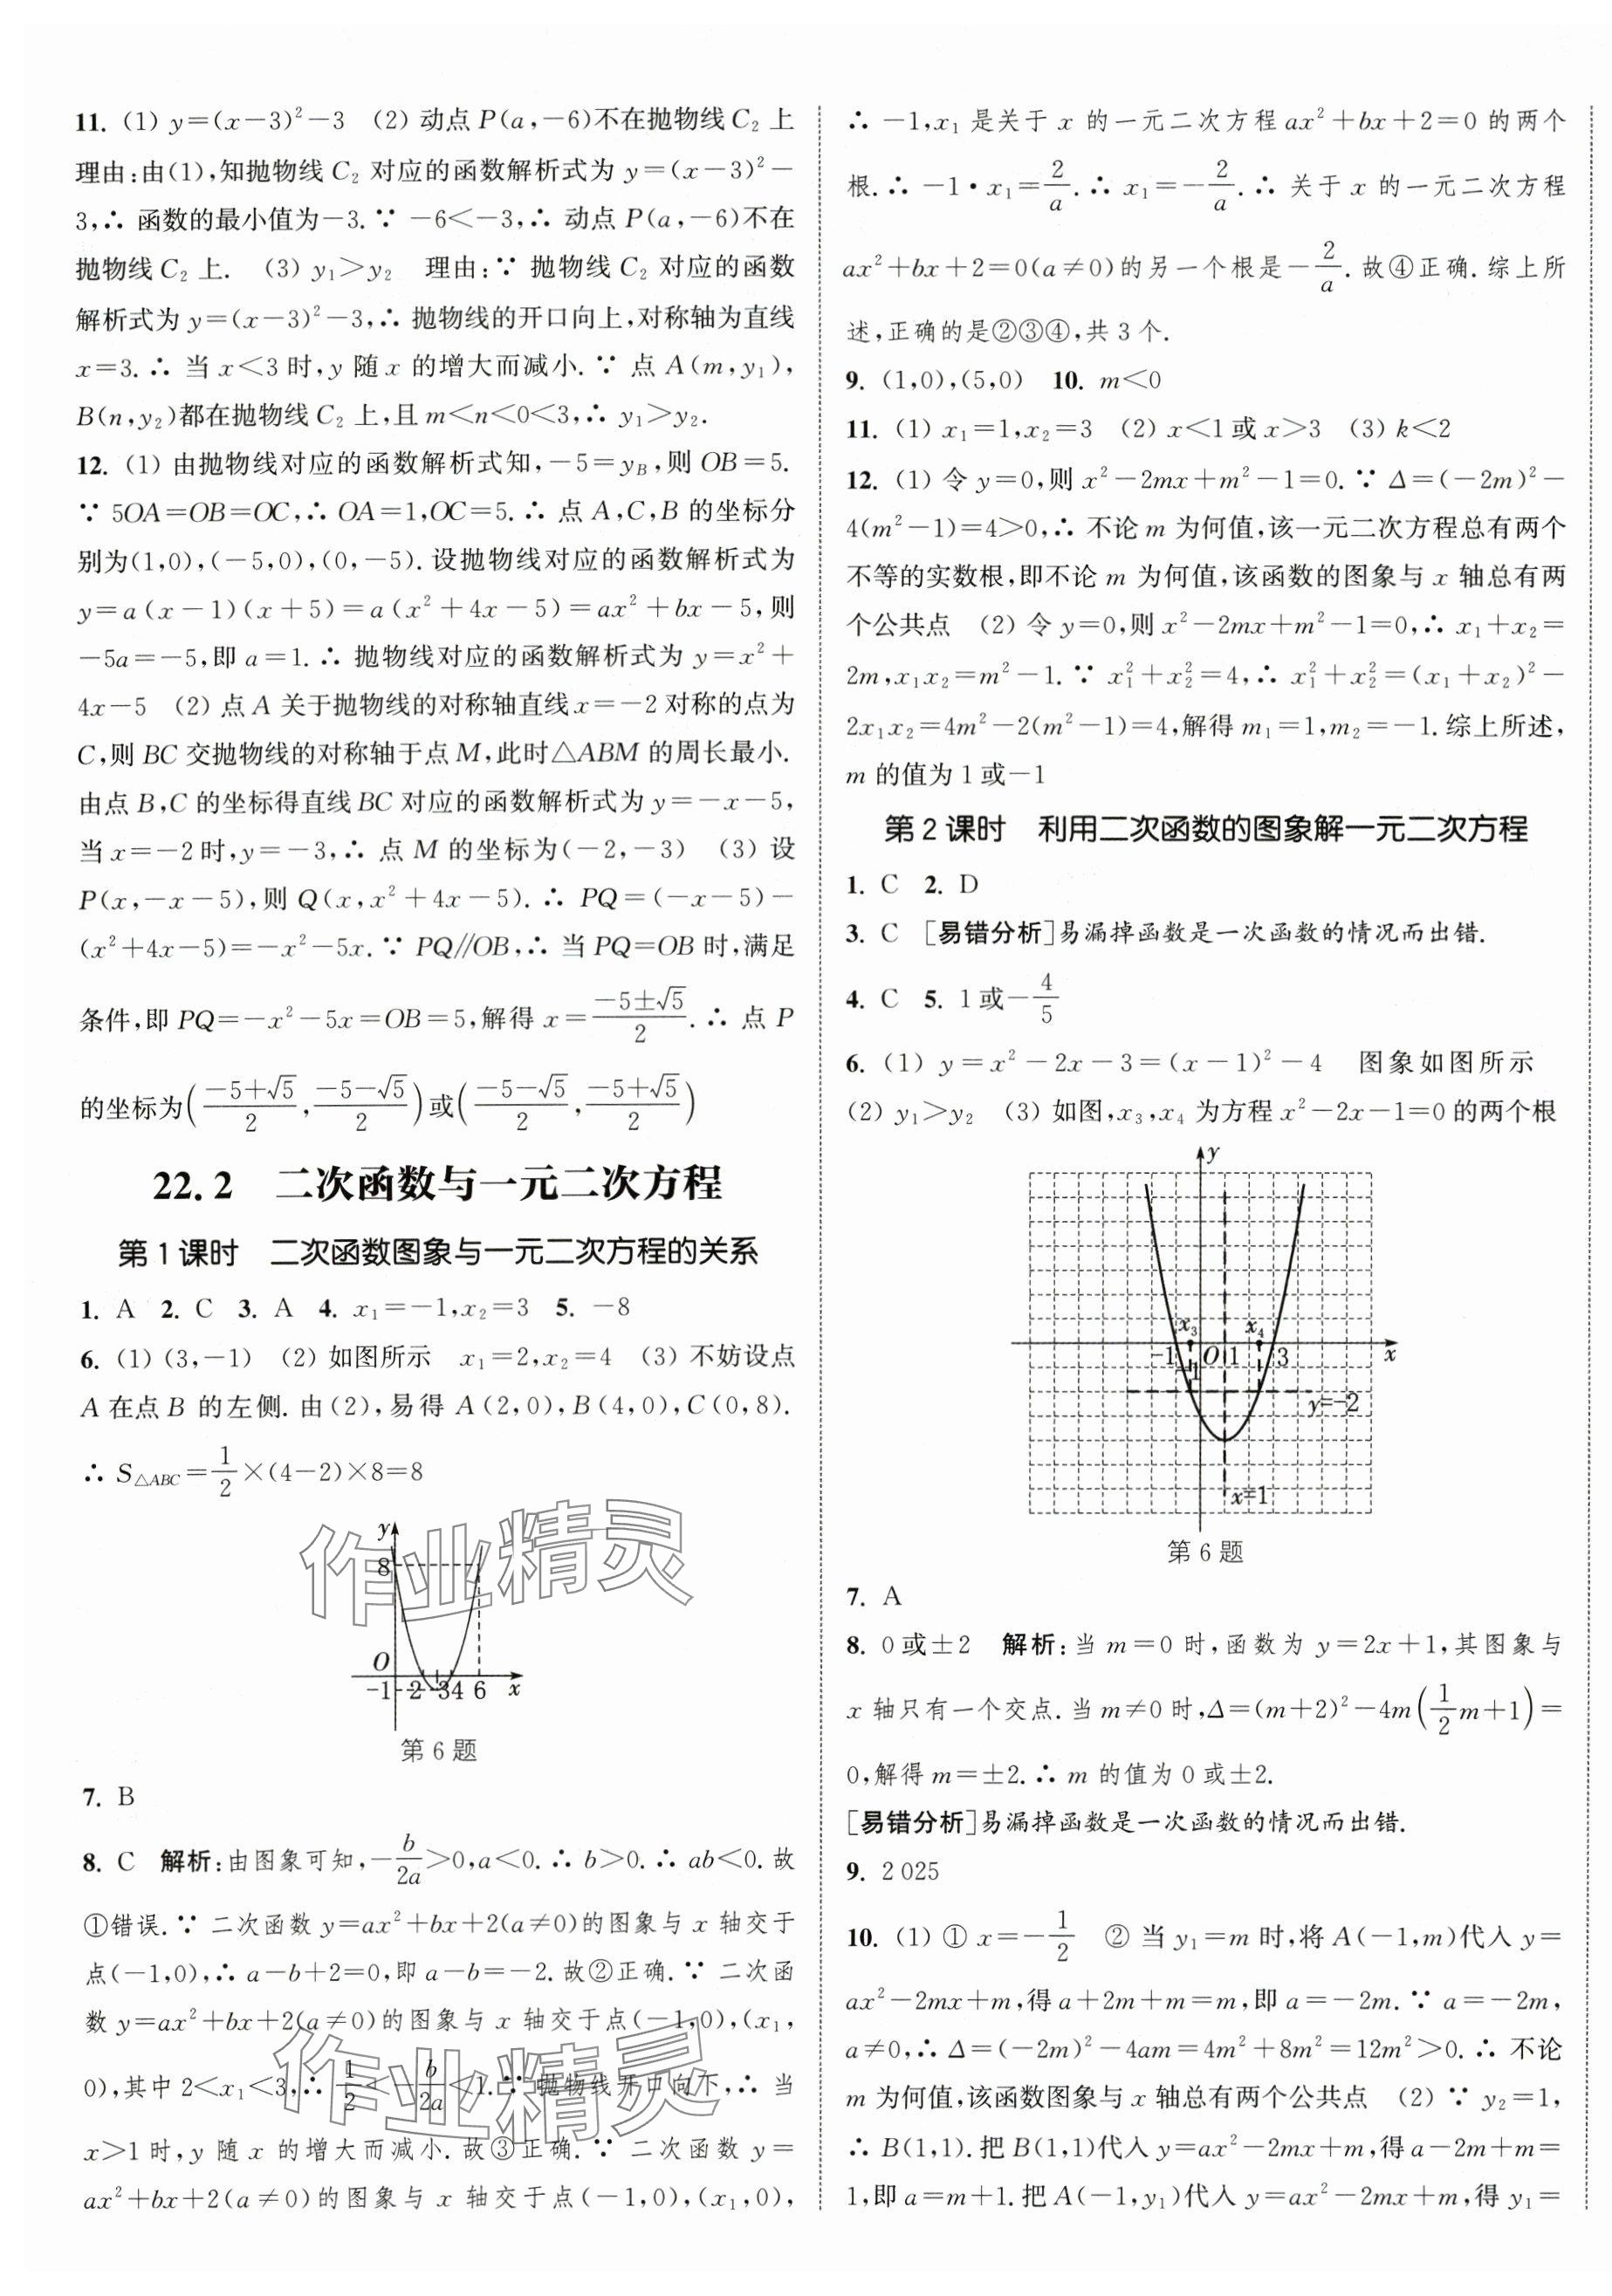 11. (1) y=(x-3)²-3 (2) 动点P(a,-6)不在抛物线C₂上
理由:由(1),知抛物线C₂对应的函数解析式为y=(x-3)²-
3,∴ 函数的最小值为-3.∵ -6<-3,∴ 动点P(a,-6)不在
抛物线C₂上. (3) y₁>y₂ 理由:∵ 抛物线C₂对应的函数
解析式为y=(x-3)²-3,∴ 抛物线的开口向上,对称轴为直线
x=3.∴ 当x<3时,y随x的增大而减小.∵ 点A(m,y₁),
B(n,y₂)都在抛物线C₂上,且m<n<0<3,∴ y₁>y₂.
12. (1) 由抛物线对应的函数解析式知,-5=y_B,则OB=5.
∵ 5OA=OB=OC,∴ OA=1,OC=5.∴ 点A,C,B的坐标分
别为(1,0),(-5,0),(0,-5).设抛物线对应的函数解析式为
y=a(x-1)(x+5)=a(x²+4x-5)=ax²+bx-5,则
-5a=-5,即a=1.∴ 抛物线对应的函数解析式为y=x²+
4x-5 (2) 点A关于抛物线的对称轴直线x=-2对称的点为
C,则BC交抛物线的对称轴于点M,此时△ABM的周长最小.
由点B,C的坐标得直线BC对应的函数解析式为y=-x-5,
当x=-2时,y=-3,∴ 点M的坐标为(-2,-3) (3) 设
P(x,-x-5),则Q(x,x²+4x-5).∴ PQ=(-x-5)-
(x²+4x-5)=-x²-5x.∵ PQ∥OB,∴ 当PQ=OB时,满足
条件,即PQ=-x²-5x=OB=5,解得x=(-5±√5)/2.∴ 点P
的坐标为((-5+√5)/2,(-5-√5)/2)或((-5-√5)/2,(-5+√5)/2)
22.2 二次函数与一元二次方程
第1课时 二次函数图象与一元二次方程的关系
1. A 2. C 3. A 4. x₁=-1,x₂=3 5. -8
6. (1) (3,-1) (2) 如图所示 x₁=2,x₂=4 (3) 不妨设点
A在点B的左侧.由(2),易得A(2,0),B(4,0),C(0,8).
∴ S△ABC=1/2×(4-2)×8=8
y
8
O
-1 2 3 4 6 x
第6题
7. B
8. C 解析:由图象可知,-b/2a>0,a<0.∴ b>0.∴ ab<0.故
①错误.∵ 二次函数y=ax²+bx+2(a≠0)的图象与x轴交于
点(-1,0),∴ a-b+2=0,即a-b=-2.故②正确.∵ 二次函
数y=ax²+bx+2(a≠0)的图象与x轴交于点(-1,0),(x₁,
0),其中2<x₁<3,∴ 1/2<-b/2a<1.∵ 抛物线开口向下,∴ 当
x>1时,y随x的增大而减小.故③正确.∵ 二次函数y=
ax²+bx+2(a≠0)的图象与x轴交于点(-1,0),(x₁,0),
∴ -1,x₁是关于x的一元二次方程ax²+bx+2=0的两个
根.∴ -1·x₁=2/a.∴ x₁=-2/a.∴ 关于x的一元二次方程
ax²+bx+2=0(a≠0)的另一个根是-2/a.故④正确.综上所
述,正确的是②③④,共3个.
9. (1,0),(5,0) 10. m<0
11. (1) x₁=1,x₂=3 (2) x<1或x>3 (3) k<2
12. (1) 令y=0,则x²-2mx+m²-1=0.∵ Δ=(-2m)²-
4(m²-1)=4>0,∴ 不论m为何值,该一元二次方程总有两个
不等的实数根,即不论m为何值,该函数的图象与x轴总有两
个公共点 (2) 令y=0,则x²-2mx+m²-1=0,∴ x₁+x₂=
2m,x₁x₂=m²-1.∵ x₁²+x₂²=4,∴ x₁²+x₂²=(x₁+x₂)²-
2x₁x₂=4m²-2(m²-1)=4,解得m₁=1,m₂=-1.综上所述,
m的值为1或-1
第2课时 利用二次函数的图象解一元二次方程
1. C 2. D
3. C [易错分析]易漏掉函数是一次函数的情况而出错.
4. C 5. 1或-4/5
6. (1) y=x²-2x-3=(x-1)²-4 图象如图所示
(2) y₁>y₂ (3) 如图,x₃,x₄为方程x²-2x-1=0的两个根
y
x₃ x₄
-1 O 1 3 x
-1
y=-2
x=1
第6题
7. A
8. 0或±2 解析:当m=0时,函数为y=2x+1,其图象与
x轴只有一个交点.当m≠0时,Δ=(m+2)²-4m(1/2m+1)=
0,解得m=±2.∴ m的值为0或±2.
[易错分析]易漏掉函数是一次函数的情况而出错.
9. 2 025
10. (1) ① x=-1/2 ② 当y₁=m时,将A(-1,m)代入y=
ax²-2mx+m,得a+2m+m=m,即a=-2m.∵ a=-2m,
a≠0,∴ Δ=(-2m)²-4am=4m²+8m²=12m²>0.∴ 不论
m为何值,该函数图象与x轴总有两个公共点 (2) ∵ y₂=1,
∴ B(1,1).把B(1,1)代入y=ax²-2mx+m,得a-2m+m=
1,即a=m+1.把A(-1,y₁)代入y=ax²-2mx+m,得y₁=
作业精灵
作业精灵